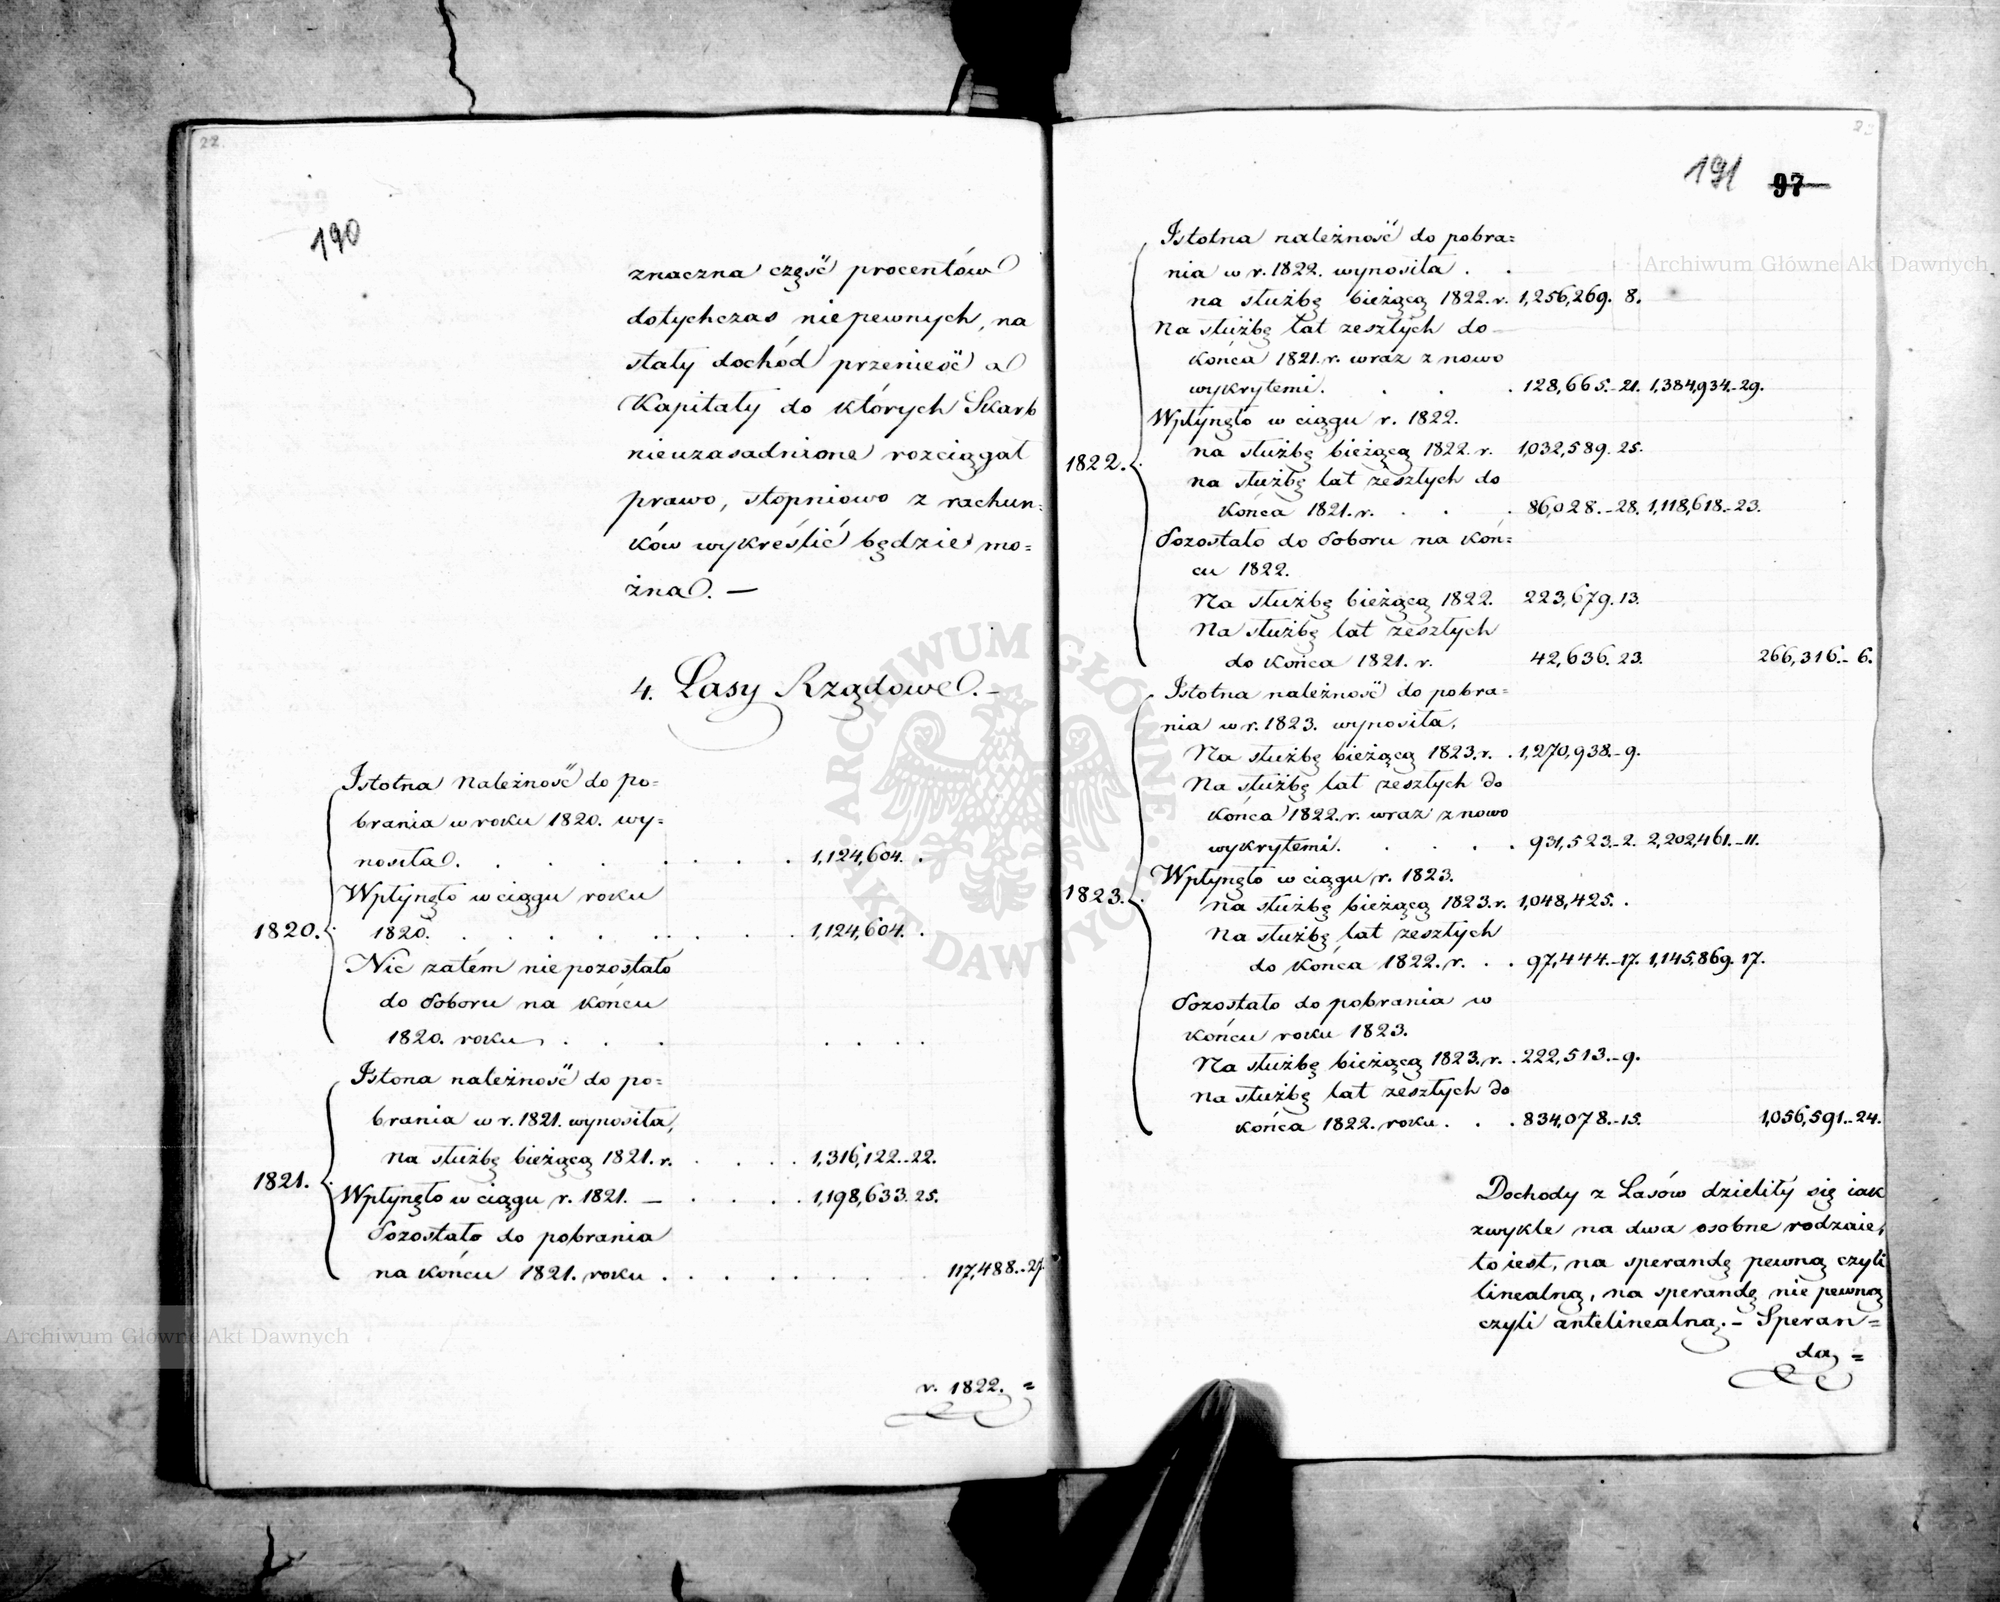 22.
190
znaczna część procentów
dotychczas niepewnych, na
stały dochód przenieść a
Kapitały do których Skarb
nieuzasadnione rozciągał
prawo, stopniowo z rachun=
ków wykreślić będzie mo=
żna. —
4. Lasy Rządowe. —
1820.
Istotna Należność do po=
brania w roku 1820. wy=
nosiła . . . . . . . . 1,124,604. .
Wpłynęło w ciągu roku
1820. . . . . . . . . 1,124,604. .
Nic zatém niepozostało
do Poboru na końcu
1820. roku . . . . . . .
1821.
Istona należność do po=
brania w r. 1821. wynosiła,
na służbę bieżącą 1821. r. . . . 1,316,122.-22.
Wpłynęło w ciągu r. 1821. — . . . . 1,198,633. 25.
Pozostało do pobrania
na końcu 1821. roku . . . . . . . 117,488.-27.
r. 1822. =
23
191 97
1822.
Istotna należność do pobra=
nia w r. 1822. wynosiła . .
na służbę bieżącą 1822. r. 1,256,269. 8.
Na służbę lat zeszłych do
końca 1821. r. wraz z nowo
wykrytemi. . . . 128,665.-21. 1,384,934.-29.
Wpłynęło w ciągu r. 1822.
na służbę bieżącą 1822. r. 1,032,589. 25.
na służbę lat zeszłych do
końca 1821. r. . . . 86,028.-28. 1,118,618.-23.
Pozostało do Poboru na koń=
cu 1822.
Na służbę bieżącą 1822. 223,679. 13.
Na służbę lat zeszłych
do końca 1821. r. 42,636. 23. 266,316.- 6.
1823.
Istotna należność do pobra=
nia w r. 1823. wynosiła,
Na służbę bieżącą 1823. r. . 1,270,938.-9.
Na służbę lat zeszłych do
końca 1822. r. wraz z nowo
wykrytemi. . . . 931,523.-2. 2,202,461.-11.
Wpłynęło w ciągu r. 1823.
na służbę bieżącą 1823. r. 1,048,425. .
Na służbę lat zeszłych
do końca 1822. r. . . 97,444.-17. 1,145,869. 17.
Pozostało do pobrania w
końcu roku 1823.
Na służbę bieżącą 1823. r. . 222,513.-9.
Na służbę lat zeszłych do
końca 1822. roku . . . 834,078.-15. 1,056,591.-24.
Dochody z Lasów dzieliły się iak
zwykle na dwa osobne rodzaie,
to iest, na sperandę pewną czyli
linealną, na sperandę niepewną
czyli antelinealną. — Speran=
da, =
Archiwum Główne Akt Dawnych
Archiwum Główne Akt Dawnych
ARCHIWUM GŁÓWNE AKT DAWNYCH